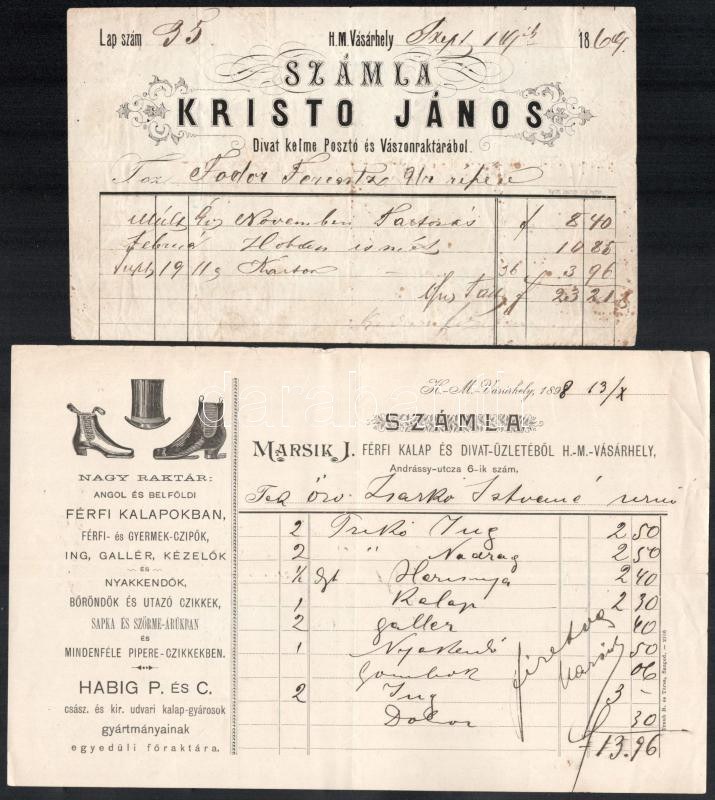 Lap szám 35. H. M. Vásárhely Sept 19 1869.
SZÁMLA
KRISTO JÁNOS
Divat kelme Posztó és Vászonraktárából.
Fodor Ferentz
Múlt Év November f 8 40
Februá 10 85
Sept 19 11 Karton 36 3 96
f 23 21
H.-M.-Vásárhely, 1898 13/X
SZÁMLA
MARSIK J. FÉRFI KALAP ÉS DIVAT-ÜZLETÉBŐL H.-M.-VÁSÁRHELY,
Andrássy-utcza 6-ik szám.
Zsarkó Istvánné
2 Trikó Ing 2 50
2 " Nadrag 2 50
½ Dgt Harisnya 2 40
1 Kalap 2 30
2 galler 40
1 Nyakkendő 50
Gombok 06
2 Ing 3 –
Doboz 30
13.96
fizetve
Marsik
NAGY RAKTÁR:
ANGOL ÉS BELFÖLDI
FÉRFI KALAPOKBAN,
FÉRFI- ÉS GYERMEK-CZIPŐK,
ING, GALLÉR, KÉZELŐK
ÉS
NYAKKENDŐK,
BŐRÖNDÖK ÉS UTAZÓ CZIKKEK,
SAPKA ÉS SZŐRME-ÁRÚKBAN
ÉS
MINDENFÉLE PIPERE-CZIKKEKBEN.
HABIG P. ÉS C.
csász. és kir. udvari kalap-gyárosok
gyártmányainak
egyedüli főraktára.
darabanth